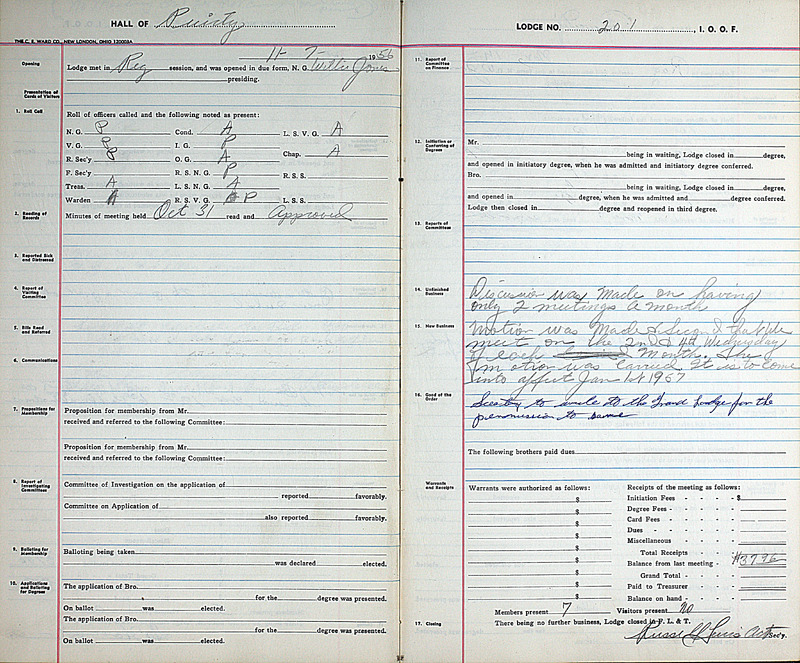 HALL OF Purity
THE C. E. WARD CO., NEW LONDON, OHIO
11 - 7 - 1956
Opening
Lodge met in Reg session, and was opened in due form, N. G. Willie Jones
presiding.
Presentation of Cards of Visitors
1. Roll Call
Roll of officers called and the following noted as present:
N. G. P Cond. A L. S. V. G. A
V. G. P I. G. P
R. Sec'y P O. G. A Chap. A
F. Sec'y R. S. N. G. P R. S. S.
Treas. A L. S. N. G. A
Warden A R. S. V. G. P L. S. S.
2. Reading of Records
Minutes of meeting held Oct 31 read and Approved
3. Reported Sick and Distressed
4. Report of Visiting Committee
5. Bills Read and Referred
6. Communications
7. Propositions for Membership
Proposition for membership from Mr.
received and referred to the following Committee:
Proposition for membership from Mr.
received and referred to the following Committee:
8. Report of Investigating Committees
Committee of Investigation on the application of
reported favorably.
Committee on Application of
also reported favorably.
9. Balloting for Membership
Balloting being taken
was declared elected.
10. Applications and Balloting for Degrees
The application of Bro.
for the degree was presented.
On ballot was elected.
The application of Bro.
for the degree was presented.
On ballot was elected.
LODGE NO. 201, I. O. O. F.
11. Report of Committee on Finance
12. Initiation or Conferring of Degrees
Mr.
being in waiting, Lodge closed in degree,
and opened in initiatory degree, when he was admitted and initiatory degree conferred.
Bro.
being in waiting, Lodge closed in degree,
and opened in degree, when he was admitted and degree conferred.
Lodge then closed in degree and reopened in third degree.
13. Reports of Committees
14. Unfinished Business
Discusion was Made on having
only 2 meetings a month
15. New Business
Motion was Made & Secon d that We
meet on the 2nd & 4th Wednesday
of each Month. The
motion was carried It is to come
into affect Jan 1st 1957
16. Good of the Order
to the Grand Lodge for the
permission to same
The following brothers paid dues
Warrants and Receipts
Warrants were authorized as follows: Receipts of the meeting as follows:
$ Initiation Fees - - - - $
$ Degree Fees - - - -
$ Card Fees - - - -
$ Dues - - - -
$ Miscellaneous - - - -
$ Total Receipts
$ Balance from last meeting - 37 96
$ Grand Total -
$ Paid to Treasurer
$ Balance on hand -
Members present 7 Visitors present no
17. Closing
There being no further business, Lodge closed in F. L. & T.
Russell Lewis Act Sec'y.